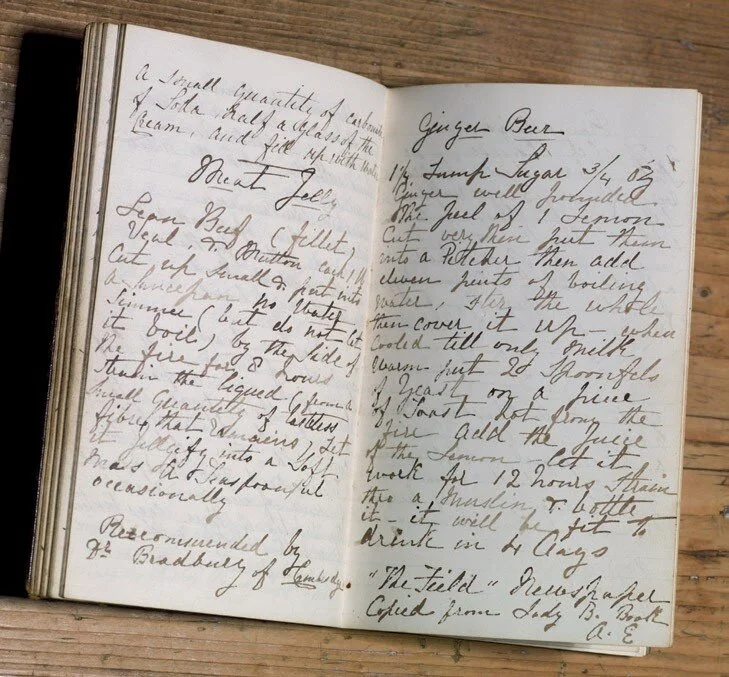 A small quantity of carbonate
of Soda half a glass of the
Cream, and fill up with Water
Meat Jelly
Lean Beef (fillet)
Veal, & Mutton each 1
Cut up small & put into
a Saucepan no Water
Simmer (but do not let
it boil) by the side of
the fire for 8 hours
strain the liquid (from a
small quantity of tasteless
fibre that remains) Let
it jellyify into a soft
mass A Teaspoonful
occasionally
Recommended by
Dr Bradbury of
Ginger Beer
1 1/4 Lump Sugar 3/4 oz
Ginger well pounded
The peel of 1 Lemon
Cut very thin put them
into a Pitcher then add
eleven pints of boiling
water, stir the whole
then cover it up - when
cooled till only milk
warm put 2 Spoonfuls
of Yeast on a piece
of Toast hot from the
fire add the juice
of the Lemon - let it
work for 12 hours strain
thro a Muslin & bottle
it - it will be fit to
drink in 4 days
"The Field" Newspaper
Copied from Lady B. Book
A. E